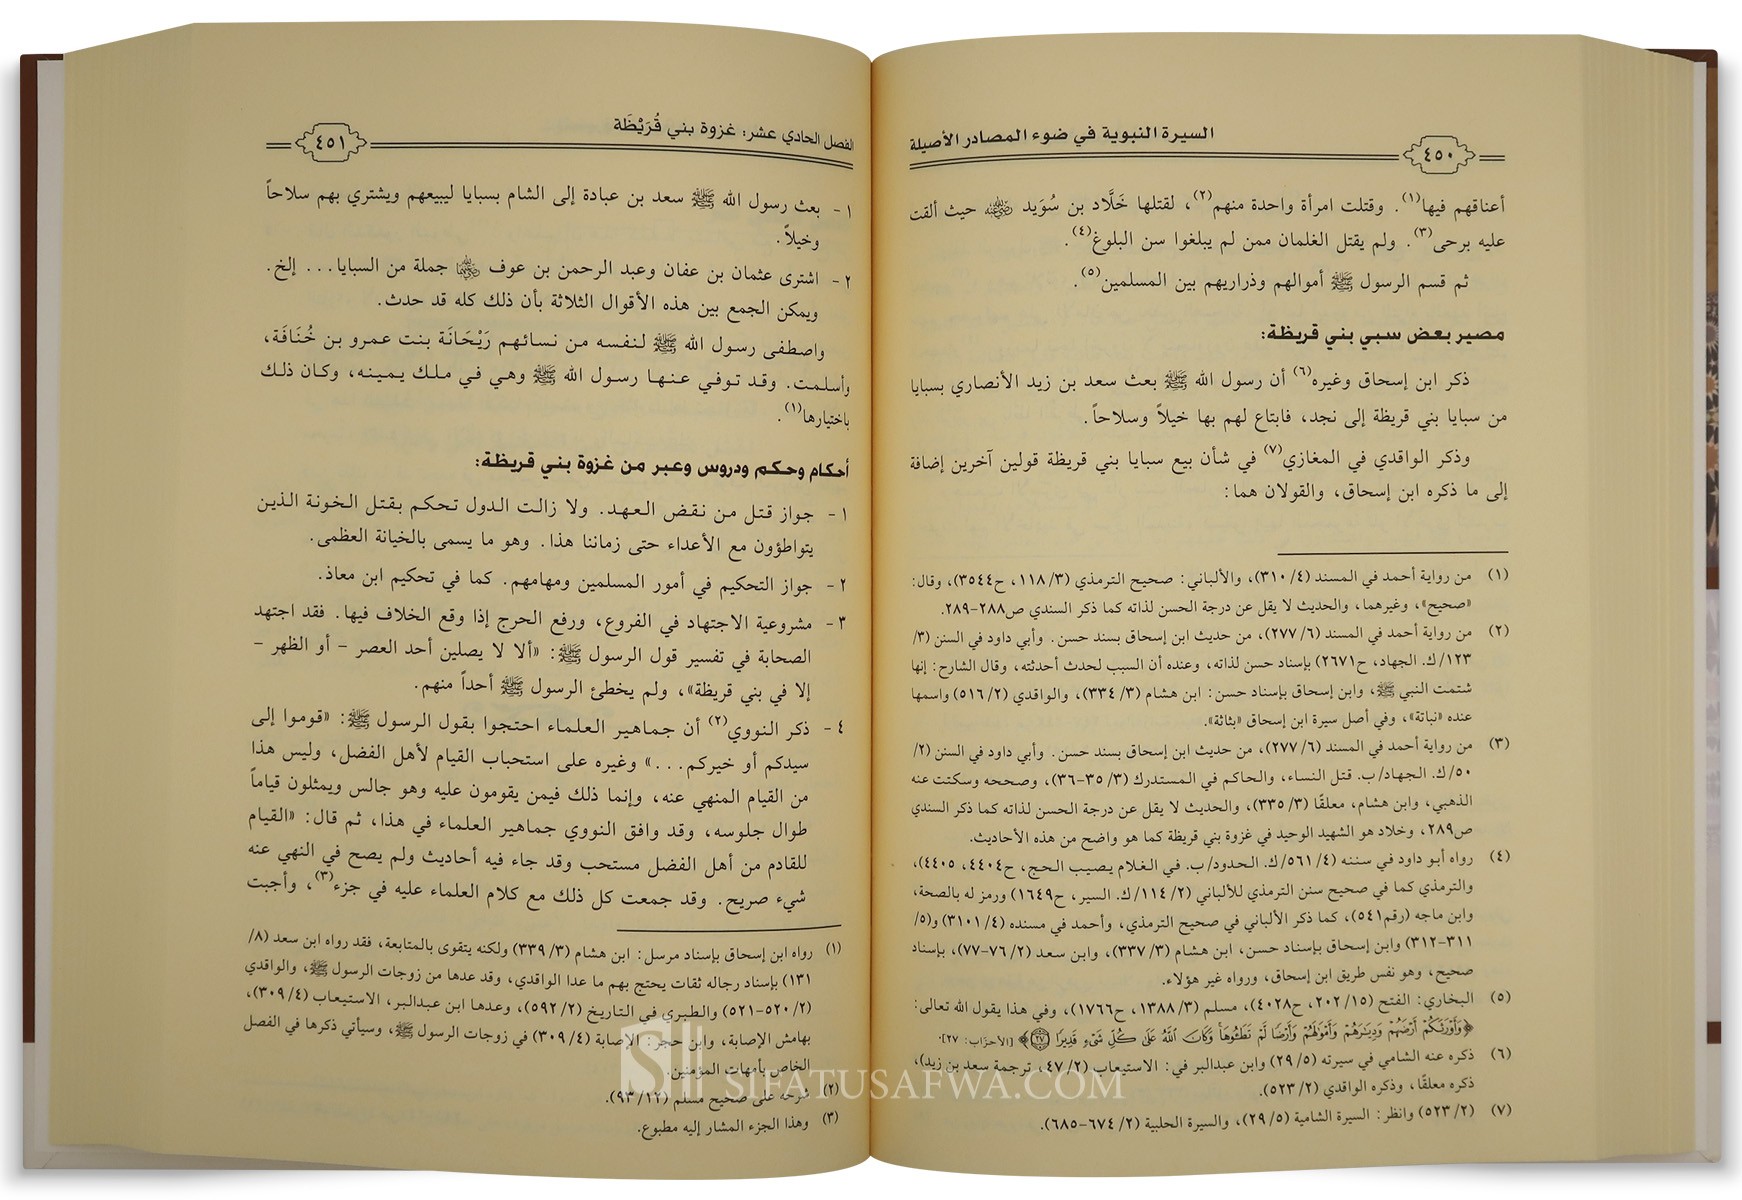 السيرة النبوية في ضوء المصادر الأصيلة
٤٥٠
أعناقهم فيها(١). وقتلت امرأة واحدة منهم(٢)، لقتلها خَلَّاد بن سُوَيد رضي الله عنه حيث ألقت
عليه برحى(٣). ولم يقتل الغلمان ممن لم يبلغوا سن البلوغ(٤).
ثم قسم الرسول ﷺ أموالهم وذراريهم بين المسلمين(٥).
مصير بعض سبي بني قريظة:
ذكر ابن إسحاق وغيره(٦) أن رسول الله ﷺ بعث سعد بن زيد الأنصاري بسبايا
من سبايا بني قريظة إلى نجد، فابتاع لهم بها خيلاً وسلاحاً.
وذكر الواقدي في المغازي(٧) في شأن بيع سبايا بني قريظة قولين آخرين إضافة
إلى ما ذكره ابن إسحاق، والقولان هما:
(١) من رواية أحمد في المسند (٣١٠/٤)، والألباني: صحيح الترمذي (١١٨/٣، ح٣٥٤٤)، وقال:
«صحيح»، وغيرهما، والحديث لا يقل عن درجة الحسن لذاته كما ذكر السندي ص٢٨٨-٢٨٩.
(٢) من رواية أحمد في المسند (٢٧٧/٦)، من حديث ابن إسحاق بسند حسن. وأبي داود في السنن (٣/
١٢٣/ك. الجهاد، ح٢٦٧١) بإسناد حسن لذاته، وعنده أن السبب لحدث أحدثته، وقال الشارح: إنها
شتمت النبي ﷺ، وابن إسحاق بإسناد حسن: ابن هشام (٣٣٤/٣)، والواقدي (٥١٦/٢) واسمها
عنده «نباتة»، وفي أصل سيرة ابن إسحاق «بثاثة».
(٣) من رواية أحمد في المسند (٢٧٧/٦)، من حديث ابن إسحاق بسند حسن. وأبي داود في السنن (٢/
٥٠/ك. الجهاد/ب. قتل النساء، والحاكم في المستدرك (٣٥/٣-٣٦)، وصححه وسكتت عنه
الذهبي، وابن هشام، معلقًا (٣٣٥/٣)، والحديث لا يقل عن درجة الحسن لذاته كما ذكر السندي
ص٢٨٩، وخلاد هو الشهيد الوحيد في غزوة بني قريظة كما هو واضح من هذه الأحاديث.
(٤) رواه أبو داود في سننه (٥٦١/٤/ك. الحدود/ب. في الغلام يصيب الحج، ح٤٤٠٤، ٤٤٠٥)،
والترمذي كما في صحيح سنن الترمذي للألباني (١١٤/٢/ك. السير، ح١٦٤٩) ورمز له بالصحة،
وابن ماجه (رقم٥٤١)، كما ذكر الألباني في صحيح الترمذي، وأحمد في مسنده (٣١٠١/٤) و(٥/
٣١١-٣١٢) وابن إسحاق بإسناد حسن، ابن هشام (٣٣٧/٣)، وابن سعد (٧٦/٢-٧٧)، بإسناد
صحيح، وهو نفس طريق ابن إسحاق، ورواه غير هؤلاء.
(٥) البخاري: الفتح (٢٠٢/١٥، ح٤٠٢٨)، مسلم (١٣٨٨/٣، ح١٧٦٦)، وفي هذا يقول الله تعالى:
﴿وَأَوْرَثَكُمْ أَرْضَهُمْ وَدِيَارَهُمْ وَأَمْوَالَهُمْ وَأَرْضًا لَّمْ تَطَئُوهَا وَكَانَ اللَّهُ عَلَىٰ كُلِّ شَيْءٍ قَدِيرًا ٢٧﴾ [الأحزاب: ٢٧].
(٦) ذكره عنه الشامي في سيرته (٢٩/٥) وابن عبدالبر في: الاستيعاب (٤٧/٢، ترجمة سعد بن زيد)،
ذكره معلقًا، وذكره الواقدي (٥٢٣/٢).
(٧) (٥٢٣/٢) وانظر: السيرة الشامية (٢٩/٥)، والسيرة الحلبية (٦٧٤/٢-٦٨٥).
الفصل الحادي عشر: غزوة بني قُرَيْظَة
٤٥١
١ - بعث رسول الله ﷺ سعد بن عبادة إلى الشام بسبايا ليبيعهم ويشتري بهم سلاحاً
وخيلاً.
٢ - اشترى عثمان بن عفان وعبد الرحمن بن عوف رضي الله عنهما جملة من السبايا... إلخ.
ويمكن الجمع بين هذه الأقوال الثلاثة بأن ذلك كله قد حدث.
واصطفى رسول الله ﷺ لنفسه من نسائهم رَيْحَانَة بنت عمرو بن خُنَافَة،
وأسلمت. وقد توفي عنها رسول الله ﷺ وهي في ملك يمينه، وكان ذلك
باختيارها(١).
أحكام وحكم ودروس وعبر من غزوة بني قريظة:
١ - جواز قتل من نقض العهد. ولا زالت الدول تحكم بقتل الخونة الذين
يتواطؤون مع الأعداء حتى زماننا هذا. وهو ما يسمى بالخيانة العظمى.
٢ - جواز التحكيم في أمور المسلمين ومهامهم. كما في تحكيم ابن معاذ.
٣ - مشروعية الاجتهاد في الفروع، ورفع الحرج إذا وقع الخلاف فيها. فقد اجتهد
الصحابة في تفسير قول الرسول ﷺ: «ألا لا يصلين أحد العصر - أو الظهر -
إلا في بني قريظة»، ولم يخطئ الرسول ﷺ أحداً منهم.
٤ - ذكر النووي(٢) أن جماهير العلماء احتجوا بقول الرسول ﷺ: «قوموا إلى
سيدكم أو خيركم...» وغيره على استحباب القيام لأهل الفضل، وليس هذا
من القيام المنهي عنه، وإنما ذلك فيمن يقومون عليه وهو جالس ويمثلون قياماً
طوال جلوسه، وقد وافق النووي جماهير العلماء في هذا، ثم قال: «القيام
للقادم من أهل الفضل مستحب وقد جاء فيه أحاديث ولم يصح في النهي عنه
شيء صريح. وقد جمعت كل ذلك مع كلام العلماء عليه في جزء(٣)، وأجبت
(١) رواه ابن إسحاق بإسناد مرسل: ابن هشام (٣٣٩/٣) ولكنه يتقوى بالمتابعة، فقد رواه ابن سعد (٨/
١٣١) بإسناد رجاله ثقات يحتج بهم ما عدا الواقدي، وقد عدها من زوجات الرسول ﷺ، والواقدي
(٥٢٠/٢-٥٢١) والطبري في التاريخ (٥٩٢/٢)، وعدها ابن عبدالبر، الاستيعاب (٣٠٩/٤)،
بهامش الإصابة، وابن حجر: الإصابة (٣٠٩/٤) في زوجات الرسول ﷺ، وسيأتي ذكرها في الفصل
الخاص بأمهات المؤمنين.
(٢) شرحه على صحيح مسلم (٩٣/١٢).
(٣) وهذا الجزء المشار إليه مطبوع.
SIFATUSAFWA.COM